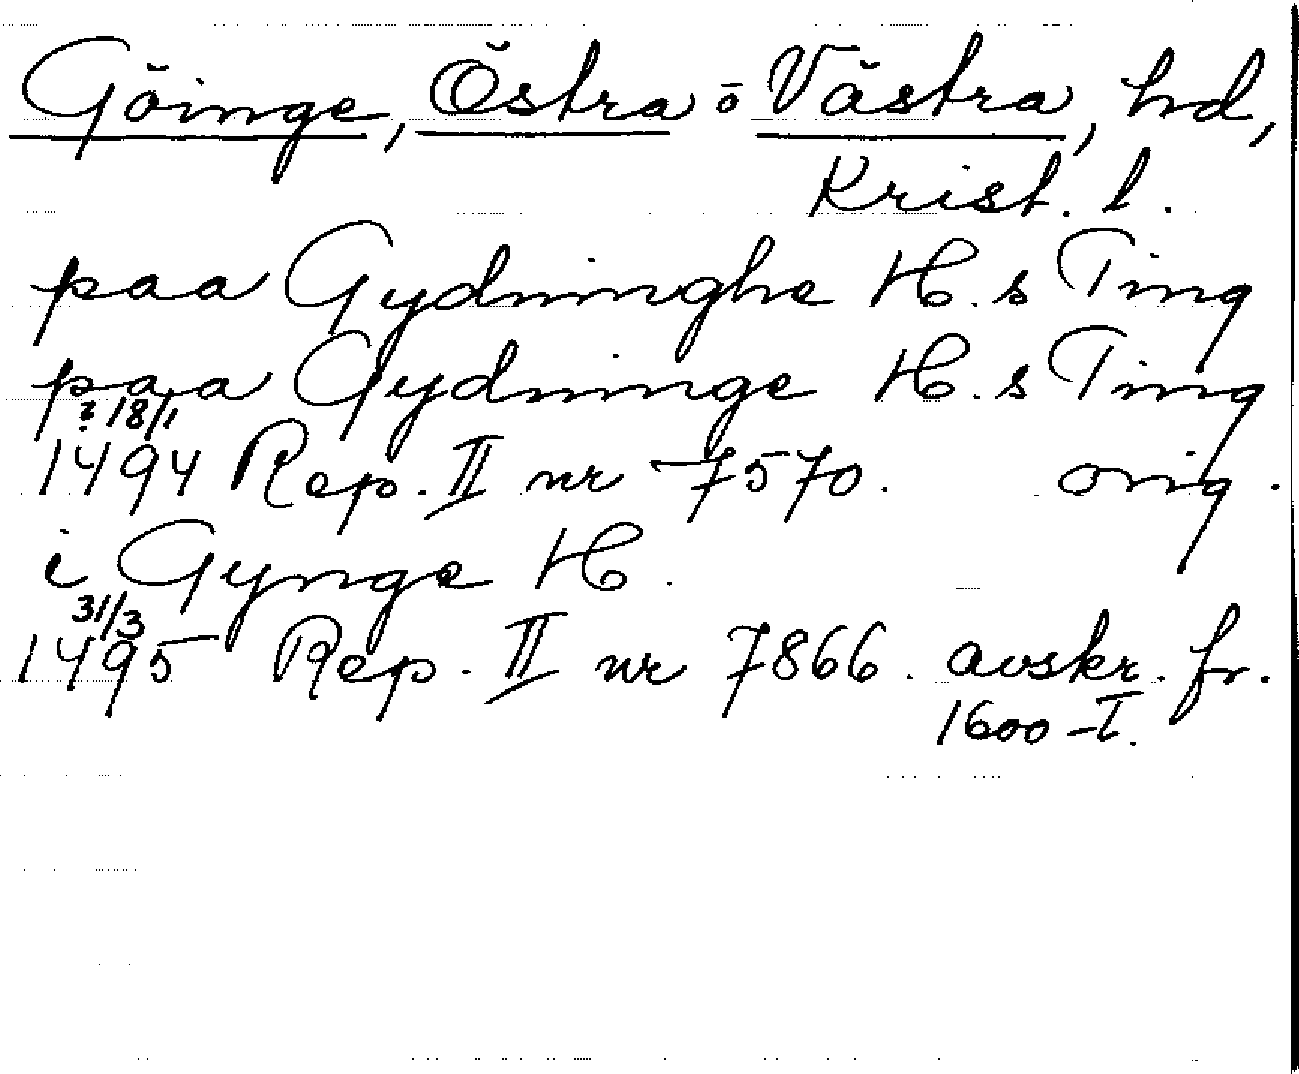 Göinge, Östra o Västra, hd,
Krist. l.
paa Gydninghe H.s Ting
paa Gydninge H.s Ting
? 18/1
1494 Rep. II nr 7570. orig.
i Gynge H.
31/3
1495 Rep. II nr 7866. avskr. fr.
1600-T.